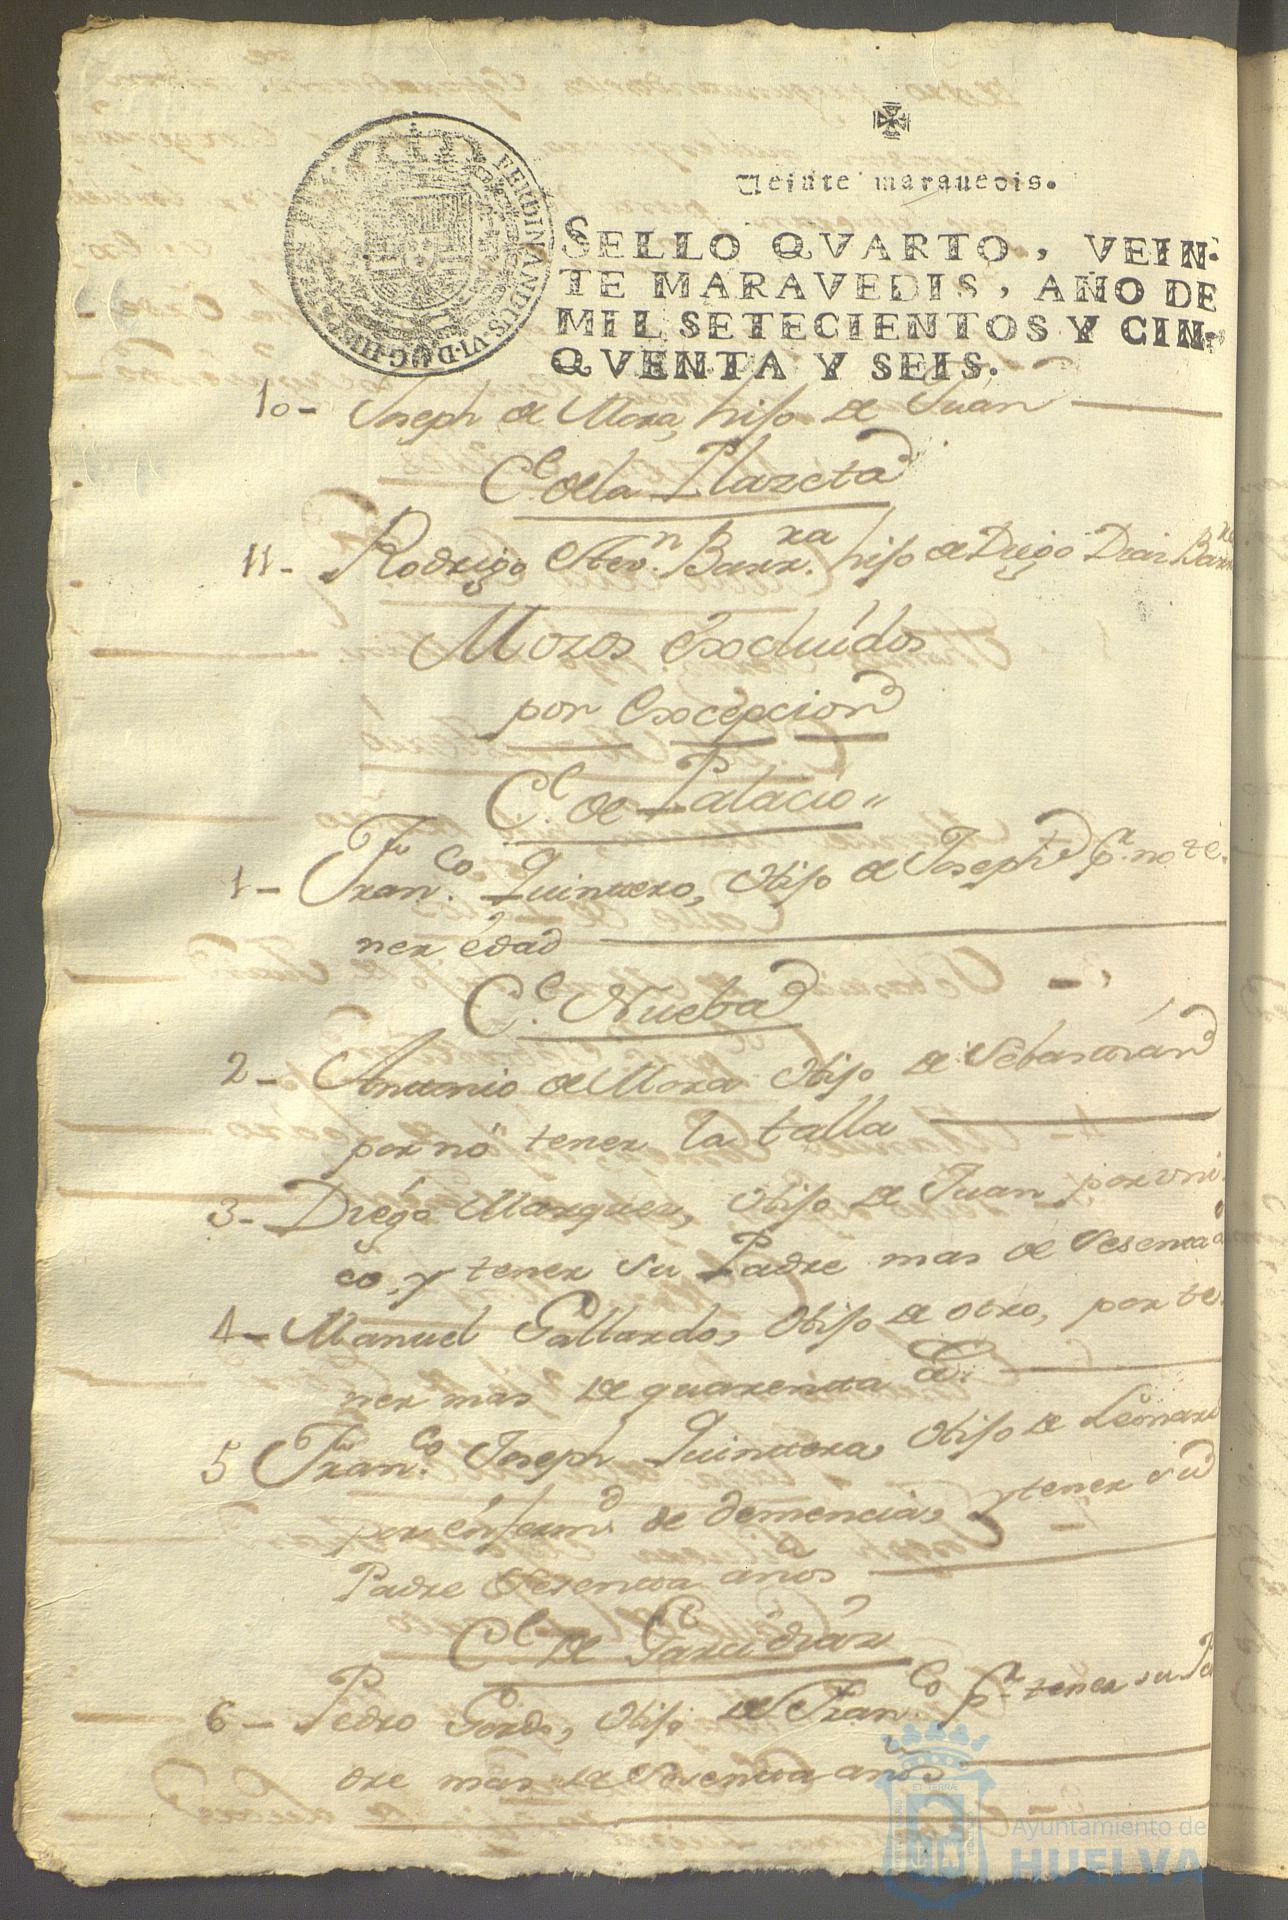 Veinte maravedis.
FERDINANDUS·VI·D·G·HISP
SELLO QVARTO, VEIN-
TE MARAVEDIS, AÑO DE
MIL SETECIENTOS Y CIN-
QVENTA Y SEIS.
10- Joseph de Mora, hijo de Juan
C.e de la Plazeta
11- Rodrigo Barr.ra hijo de Diego Diaz
Mozos excluidos
por excepcion
C.e de Palacio
1- Fran.co Quintero, Hijo de Joseph p.r no te-
ner edad
C.e Nueba
2- Antonio de Mora Hijo de Sebastian
por nó tener la talla
3- Diego Marquez, Hijo de Juan por uni-
co, y tener su Padre mas de sesenta a
4- Manuel Gallardo, Hijo de otro, por te-
ner mas de quarenta a.
5 Fran.co Joseph Quintero, Hijo de Leonardo
por enferm.d de demencia, y tener su
Padre sesenta años
C.e de Garcidiaz
6- Pedro Gordo, Hijo de Fran.co p.r tener su Pa
dre mas de sesenta años
Ayuntamiento de
HUELVA